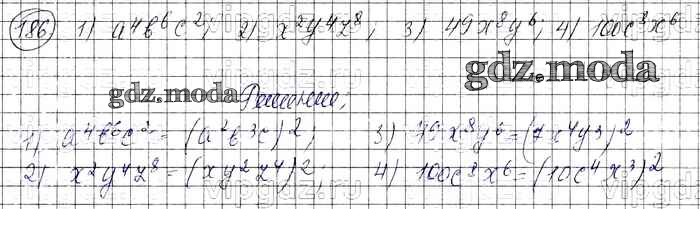 186 1) a⁴b⁶c²; 2) x²y⁴z⁸; 3) 49x⁸y⁶; 4) 100c⁸x⁶
gdz.moda
gdz.moda Решение;
1) a⁴b⁶c² = (a²b³c)²; 3) 49x⁸y⁶ = (7x⁴y³)²
2) x²y⁴z⁸ = (xy²z⁴)²; 4) 100c⁸x⁶ = (10c⁴x³)²
vipgdz.ru